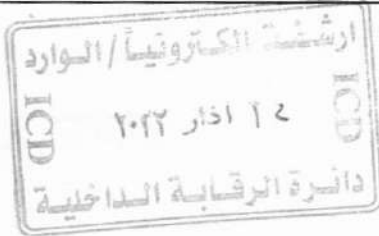 ارشفة الكترونياً / الوارد
ICD ٢٤ اذار ٢٠٢٢ ICD
دائرة الرقابة الداخلية